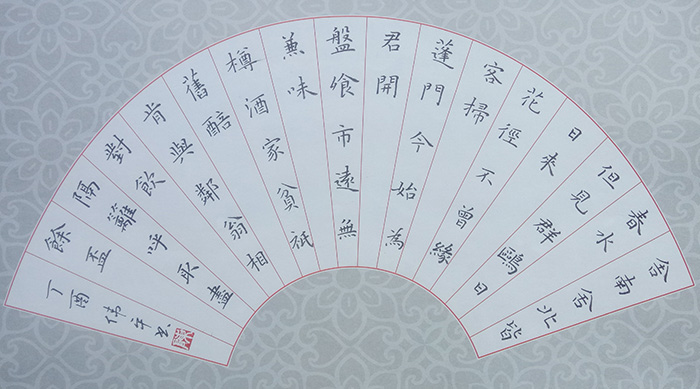 舍南舍北皆
春水
但見群鷗日
日來
花徑不曾緣
客掃
蓬門今始為
君開
盤飧市遠無
兼味
樽酒家貧祇
舊醅
肯與鄰翁相
對飲
隔籬呼取盡
餘盃
丁酉偉年書